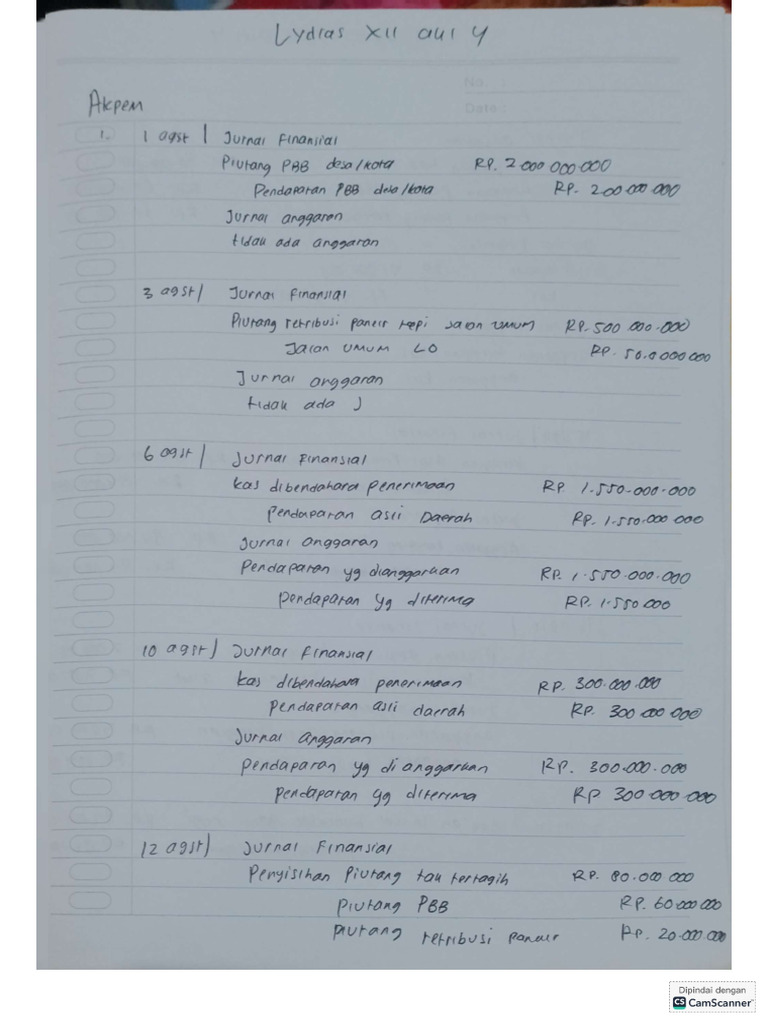 Lydias XII akl 4
No :
Date :
Akpem
1. 1 agst | Jurnal Finansial
Piutang PBB desa/kota RP. 2.000 000.000
Pendapatan PBB desa/kota RP. 200 000 000
Jurnal anggaran
tidak ada anggaran
3 agst/ Jurnal Finansial
Piutang retribusi parkir tepi jalan umum RP. 500.000.000
Jalan umum LO RP. 50.0000000
Jurnal anggaran
tidak ada J
6 agst/ Jurnal Finansial
kas dibendahara penerimaan RP. 1.550.000.000
pendapatan asli Daerah RP. 1.550.000 000
Jurnal anggaran
Pendapatan yg dianggarkan RP. 1.550.000.000
pendapatan yg diterima RP. 1.550.000
10 agst) Jurnal Finansial
kas dibendahara penerimaan RP. 300.000.000
pendapatan asli daerah RP. 300 000 000
Jurnal anggaran
pendapatan yg di anggarkan RP. 300.000.000
pendapatan yg diterima RP 300 000 000
12 agst) Jurnal Finansial
Penyisihan Piutang tak tertagih RP. 80.000 000
piutang PBB RP. 60000 000
piutang retribusi parkir Rp. 20.000.000
Dipindai dengan
CS CamScanner